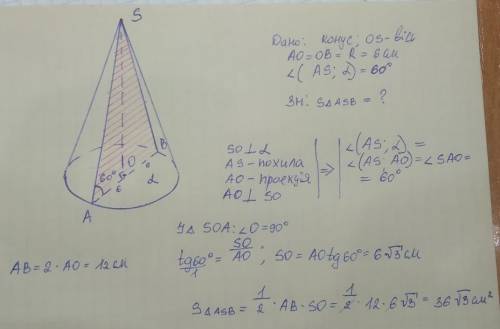 S
Дано: конус; OS-вісь
AO=OB=R=6см
∠(AS; α)=60°
Зн: S△ASB = ?
SO⊥α
AS-похила
AO-проекція
AO⊥SO
⇒
∠(AS; α) =
∠(AS; AO)=∠SAO=
= 60°
60°
O
B
6
α
A
У△ SOA: ∠O=90°
tg60°/1 = SO/AO; SO = AOtg60°=6√3см
AB=2·AO=12см
S△ASB = 1/2 · AB · SO = 1/2 · 12 · 6√3 = 36√3см²